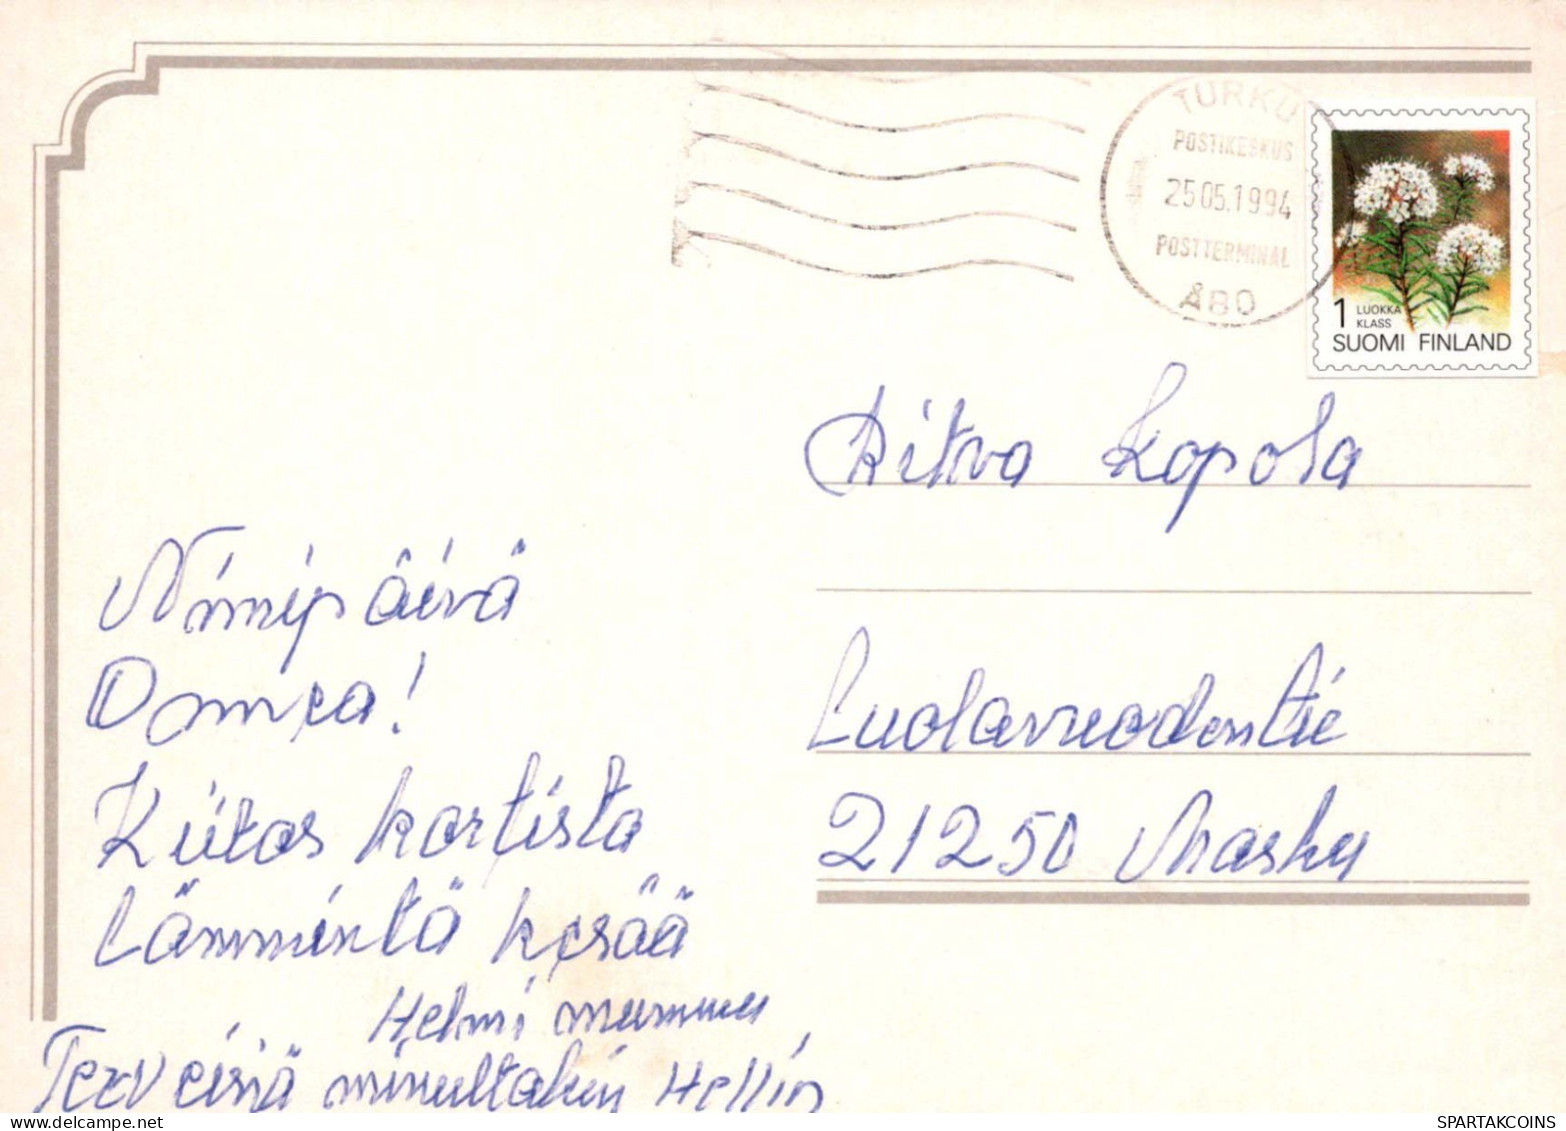 TURKU
POSTIKESKUS
25.05.1994
POSTTERMINAL
ÅBO
1 LUOKKA
KLASS
SUOMI FINLAND
Ritva Kopola
Luolavuodentie
21250 Masku
Nimipäivä
Onnea!
Kiitos kortista
Lämmintä kesää
Helmi mummu
Terveisiä minultakin Hellin
SPARTAKCOINS